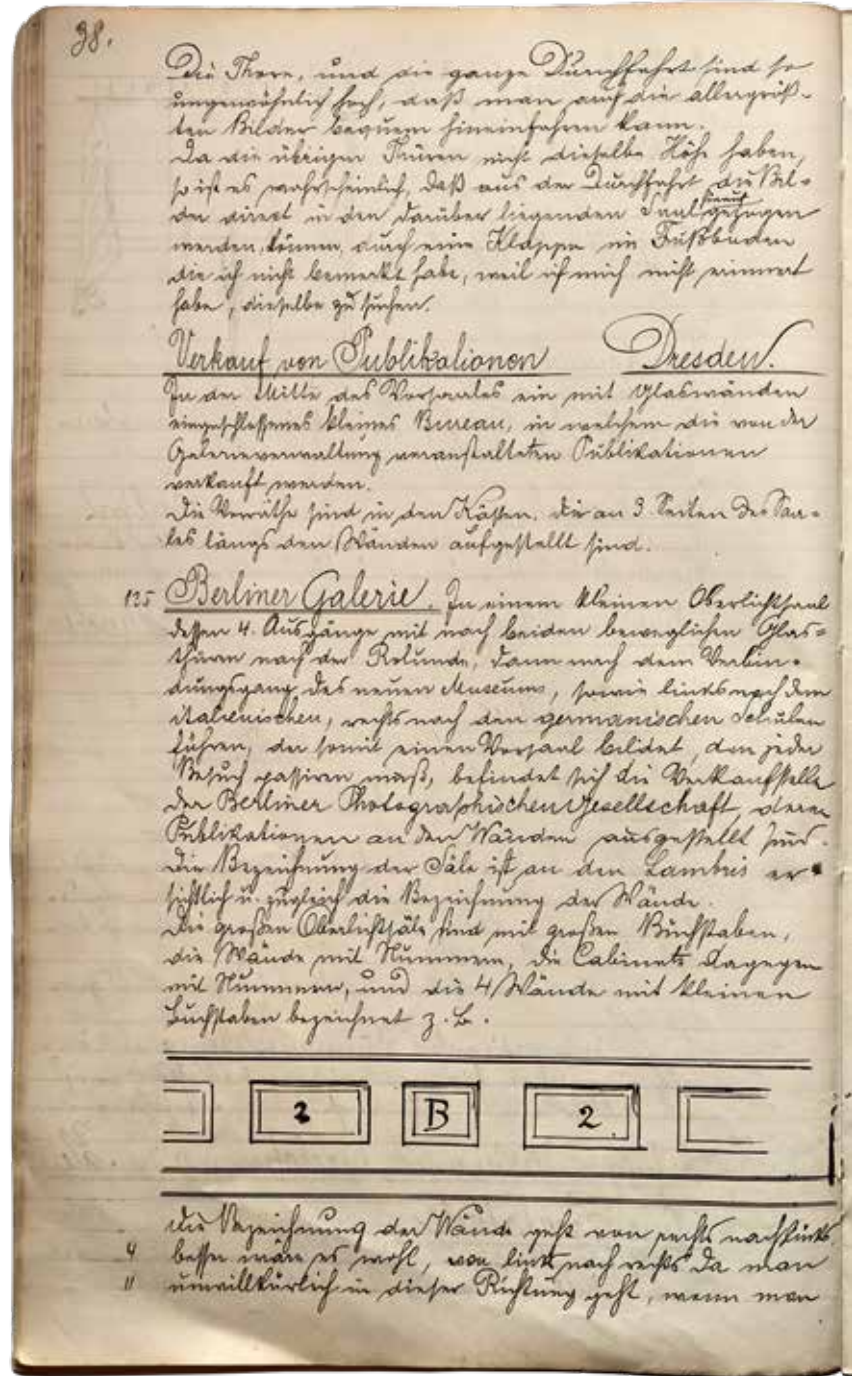 38.
Die Thore, und die ganze Durchfahrt sind so
ungewöhnlich hoch, daß man auf die allergröß-
ten Bilder bequem hineinfahren kann.
Da die übrigen Thüren nicht dieselbe Höhe haben,
so ist es wahrscheinlich, daß aus der Durchfahrt die Bil-
der direct in den darüber liegenden Saal hinauf gezogen
werden können, durch eine Klappe im Fußboden
die ich nicht bemerkt habe, weil ich mich nicht erinnert
habe, dieselbe zu suchen.
Verkauf von Publikationen Dresden.
In der Mitte des Vorsaales ein mit Glaswänden
eingeschlossenes kleines Bureau, in welchem die von der
Galerieverwaltung veranstalteten Publikationen
verkauft werden.
Die Vorräthe sind in den Kästen, die an 3 Seiten des Saa-
les längs den Wänden aufgestellt sind.
125 Berliner Galerie. In einem kleinen Oberlichtsaal
dessen 4. Ausgänge mit nach beiden beweglichen Glas-
thüren nach der Rotunde, dann nach dem Verbin-
dungsgang des neuen Museums, sowie links nach dem
italienischen, rechts nach den germanischen Schulen
führen, der somit einen Vorsaal bildet, den jeder
Besuch passiren muß, befindet sich die Verkaufstelle
der Berliner Photographischen Gesellschaft, deren
Publikationen an den Wänden ausgestellt sind.
Die Bezeichnung der Säle ist an den Lambris er
sichtlich u. zugleich die Bezeichnung der Wände.
Die großen Oberlichtsäle sind mit großen Buchstaben,
die Wände mit Nummern, die Cabinets dagegen
mit Nummern, und die 4 Wände mit kleinen
Buchstaben bezeichnet z. B.
2 B 2
Die Bezeichnung der Wände geht von rechts nach links
4 besser wäre es wohl, von links nach rechts da man
11 unwillkürlich in dieser Richtung geht, wenn man